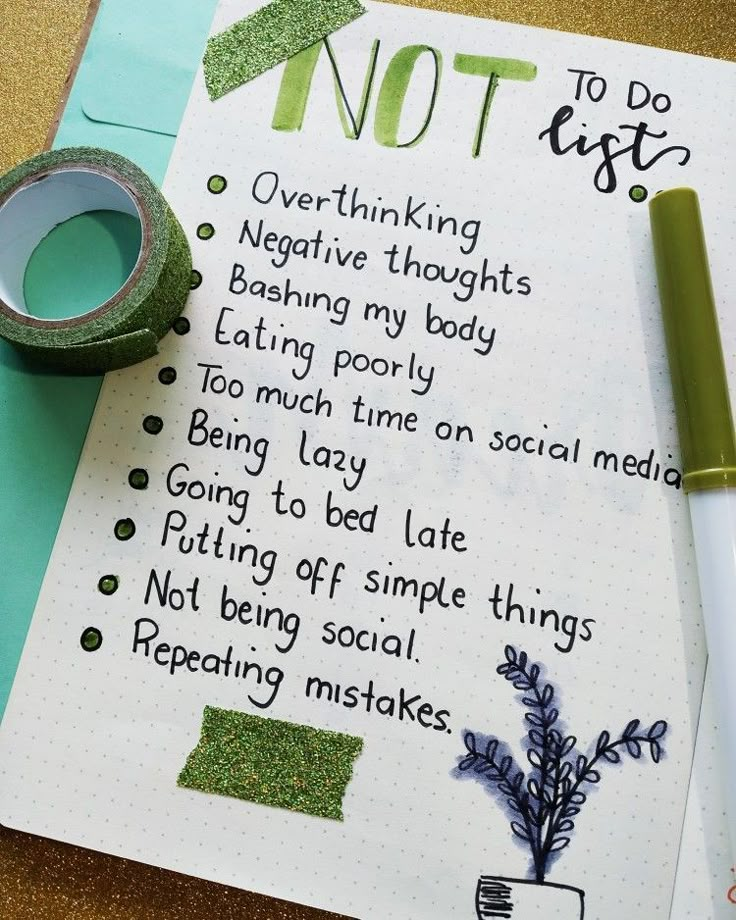 NOT TO DO
list
Overthinking
Negative thoughts
Bashing my body
Eating poorly
Too much time on social media
Being lazy
Going to bed late
Putting off simple things
Not being social.
Repeating mistakes.